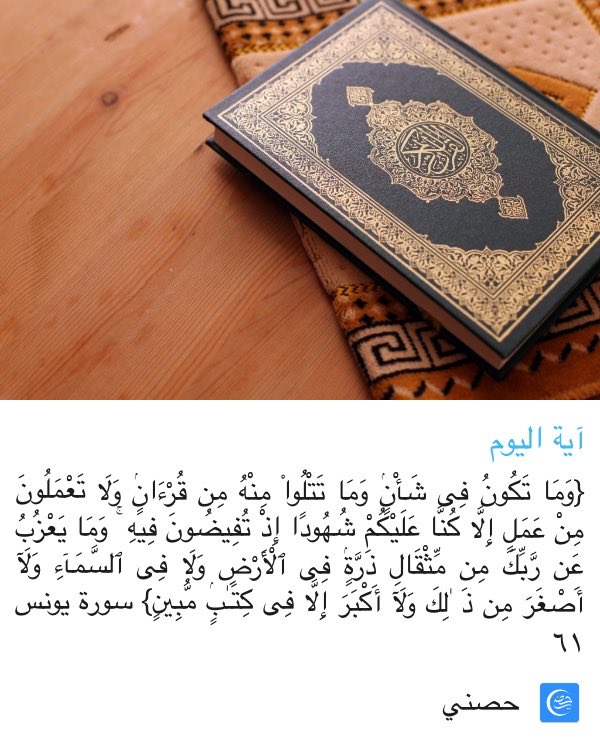 آية اليوم
{وَمَا تَكُونُ فِى شَأْنٍۢ وَمَا تَتْلُوا۟ مِنْهُ مِن قُرْءَانٍۢ وَلَا تَعْمَلُونَ
مِنْ عَمَلٍ إِلَّا كُنَّا عَلَيْكُمْ شُهُودًا إِذْ تُفِيضُونَ فِيهِ ۚ وَمَا يَعْزُبُ
عَن رَّبِّكَ مِن مِّثْقَالِ ذَرَّةٍۢ فِى ٱلْأَرْضِ وَلَا فِى ٱلسَّمَآءِ وَلَآ
أَصْغَرَ مِن ذَ ٰلِكَ وَلَآ أَكْبَرَ إِلَّا فِى كِتَـٰبٍۢ مُّبِينٍ} سورة يونس
٦١
حصني